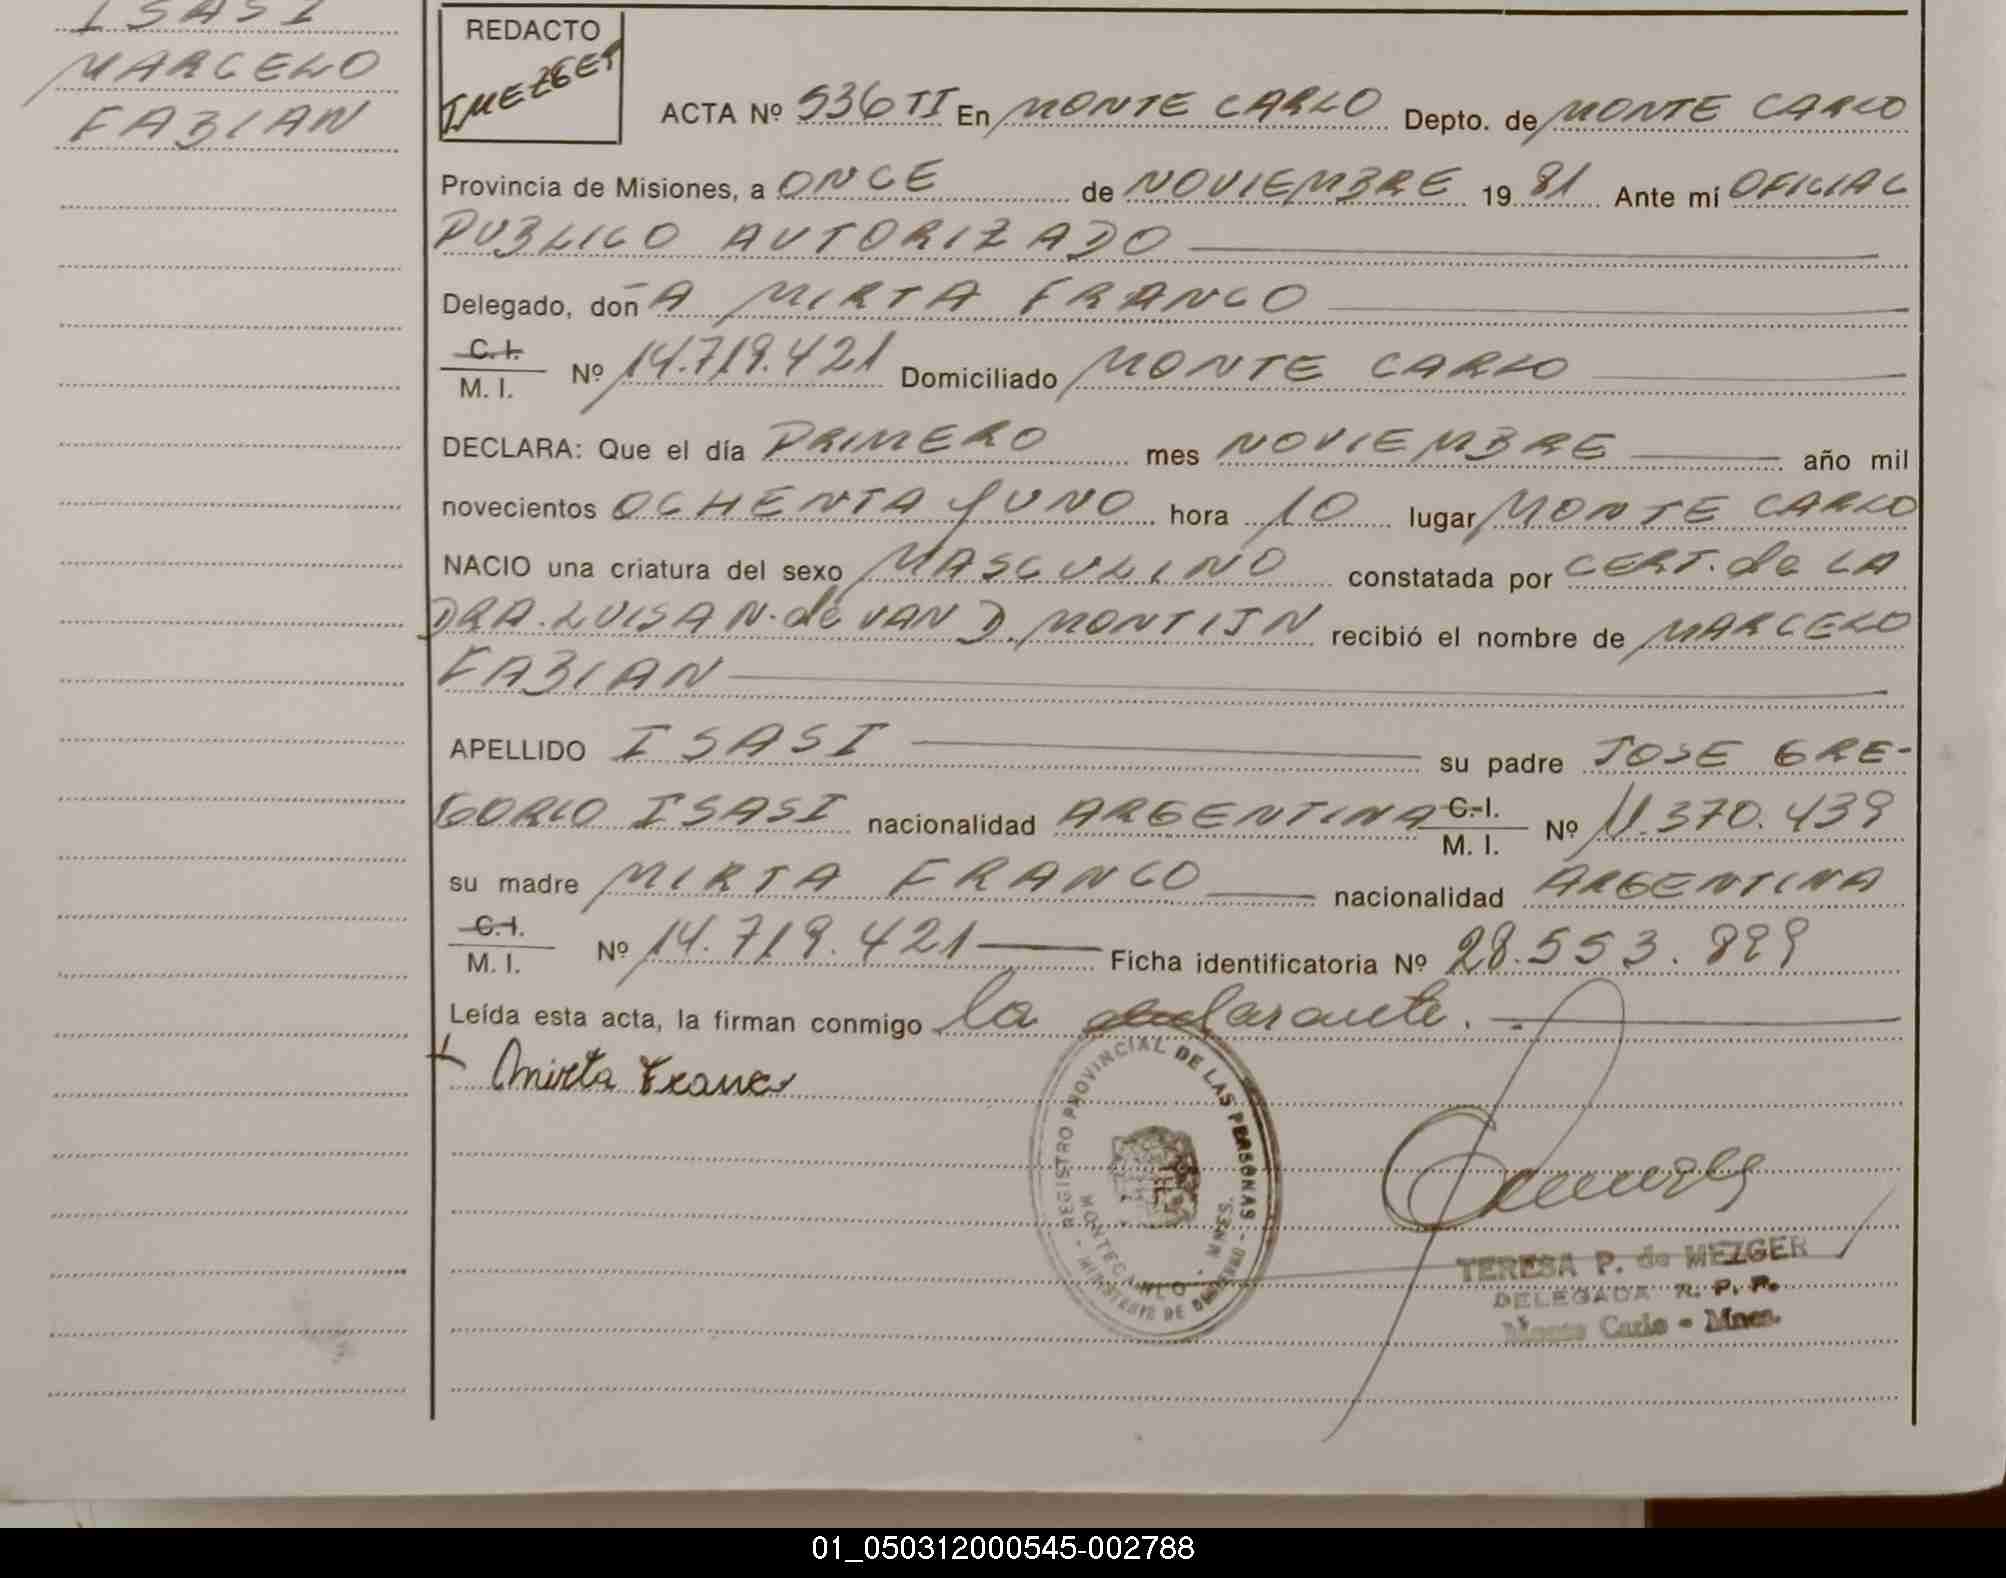 ISASI
MARCELO
FABIAN
REDACTO
T.MEZGER
ACTA Nº 536 TI En MONTE CARLO Depto. de MONTE CARLO
Provincia de Misiones, a ONCE de NOVIEMBRE 19 81 Ante mí OFICIAL
PUBLICO AUTORIZADO
Delegado, doñA MIRTA FRANCO
C.I.
M. I. Nº 14.719.421 Domiciliado MONTE CARLO
DECLARA: Que el día PRIMERO mes NOVIEMBRE año mil
novecientos OCHENTA y UNO hora 10 lugar MONTE CARLO
NACIO una criatura del sexo MASCULINO constatada por CERT. de LA
DRA. LUISA N. de VAN D MONTIJN recibió el nombre de MARCELO
FABIAN
APELLIDO ISASI su padre JOSE GRE-
GORIO ISASI nacionalidad ARGENTINA C.I. M. I. Nº 11.370.439
su madre MIRTA FRANCO nacionalidad ARGENTINA
C.I.
M. I. Nº 14.719.421 Ficha identificatoria Nº 28.553.899
Leída esta acta, la firman conmigo la declarante.
Mirta Franco
REGISTRO PROVINCIAL DE LAS PERSONAS
MONTECARLO - MNES.
MINISTERIO DE GOBIERNO
TERESA P. de MEZGER
DELEGADA R. P. P.
Monte Carlo - Mnes.
01_050312000545-002788